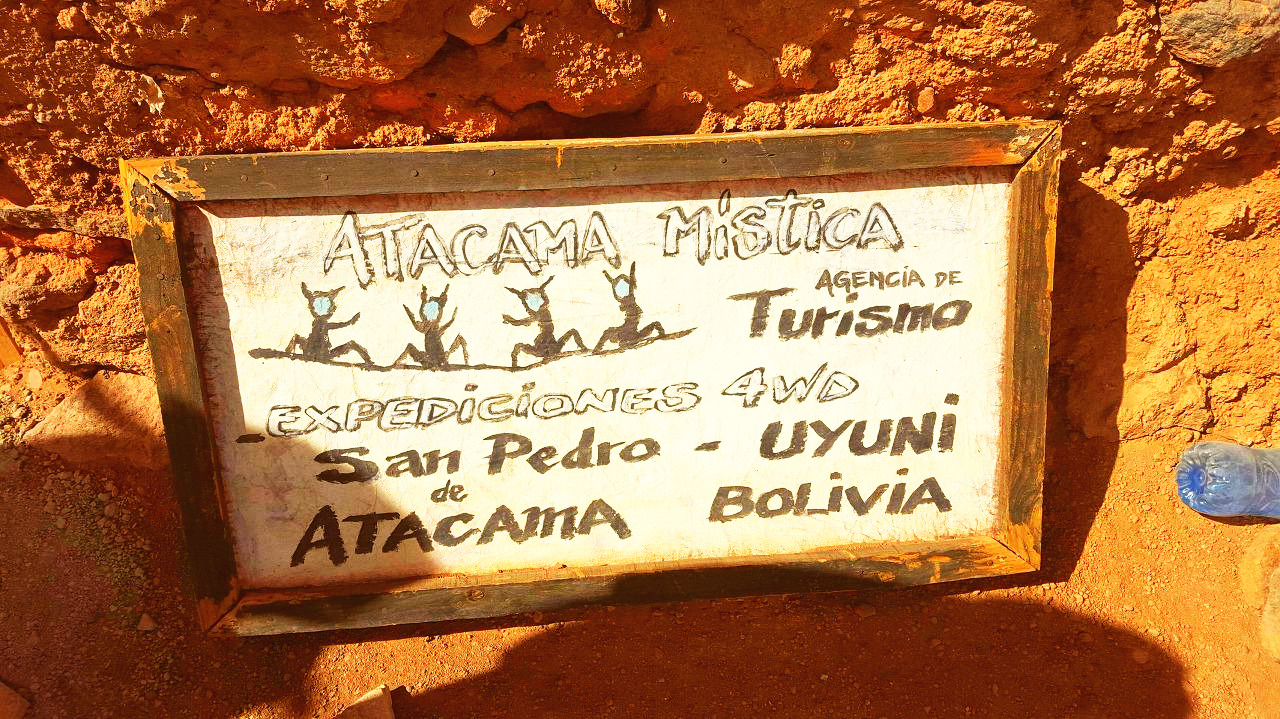 ATACAMA MíSticA
AGENCíA DE
Turismo
EXPEDICIONES 4WD
- San Pedro - UYUNI
de
ATACAMA BOLiviA